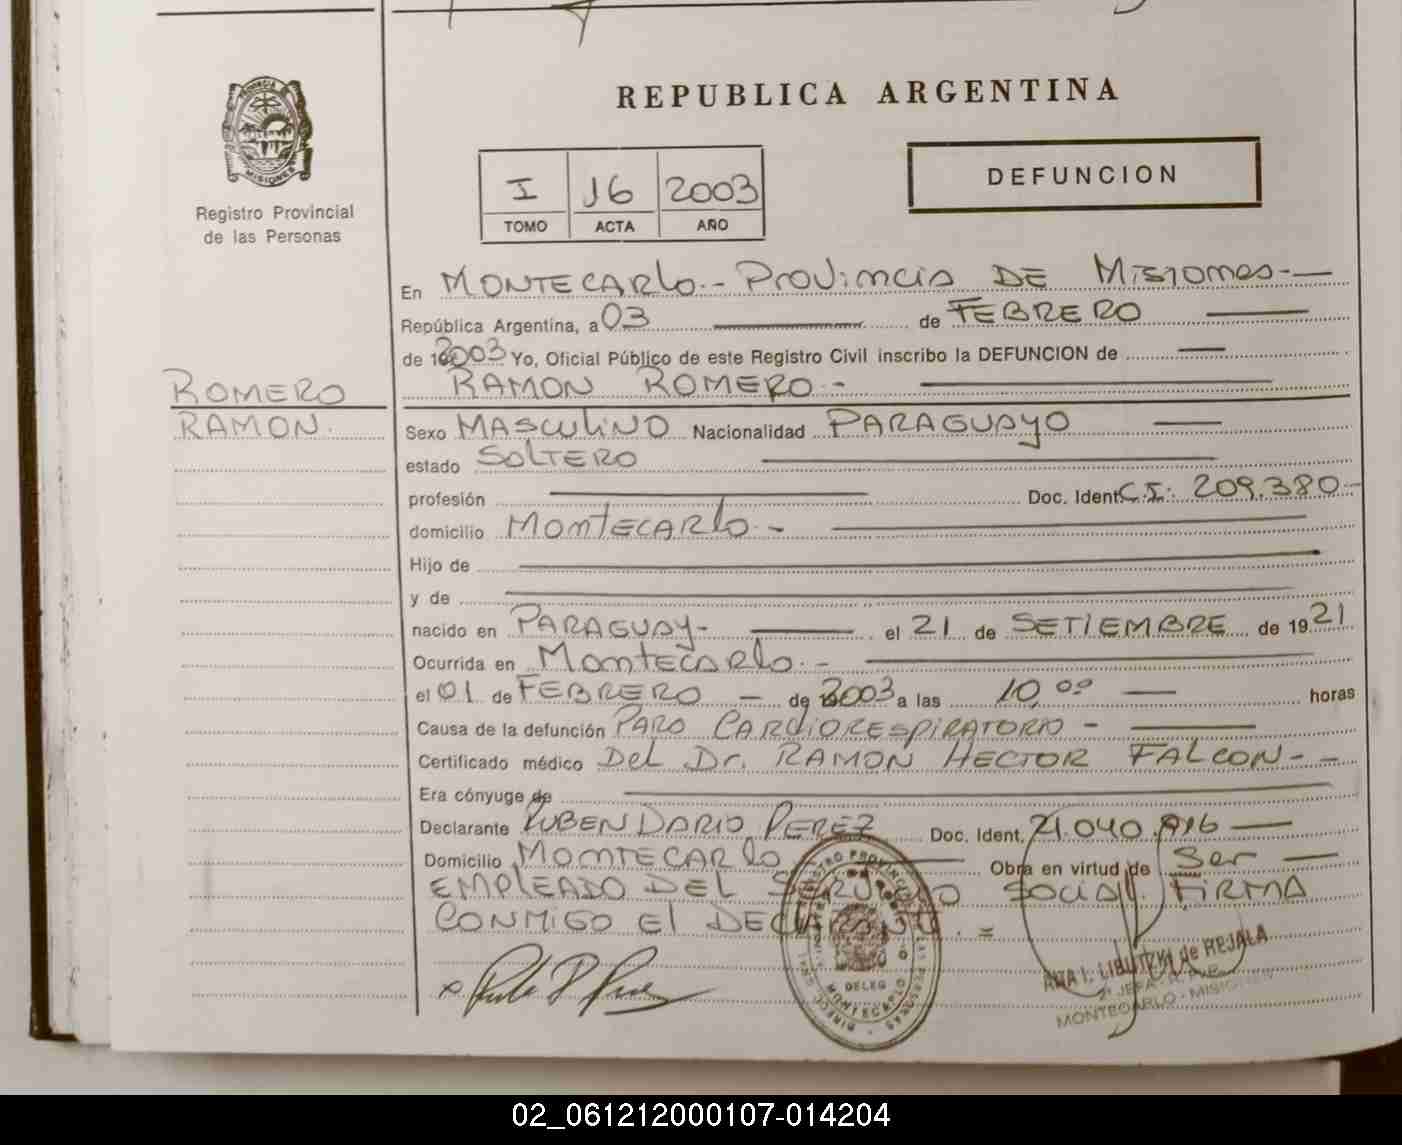 REPUBLICA ARGENTINA
PROVINCIA DE MISIONES
Registro Provincial
de las Personas
I 16 2003
TOMO ACTA AÑO
DEFUNCION
En MONTECARLO.- PROVINCIA DE MISIONES-
República Argentina, a 03 de FEBRERO
de 2003 Yo, Oficial Público de este Registro Civil inscribo la DEFUNCION de
ROMERO RAMON ROMERO.-
RAMON. Sexo MASCULINO Nacionalidad PARAGUAYO
estado SOLTERO
profesión Doc. Ident. C.I: 209.380-
domicilio MONTECARLO.-
Hijo de
y de
nacido en PARAGUAY- el 21 de SETIEMBRE de 1921
Ocurrida en MONTECARLO.-
el 01 de FEBRERO - de 2003 a las 10,00 horas
Causa de la defunción PARO CARDIORESPIRATORIO -
Certificado médico Del Dr. RAMON HECTOR FALCON--
Era cónyuge de
Declarante RUBEN DARIO PEREZ Doc. Ident. 21.040.
Domicilio MONTECARLO Obra en virtud de Ser
EMPLEADO DEL SERVICIO SOCIAL FIRMA
CONMIGO El DECLARANTE.=
DELEG
MONTECARLO
ANA I. de REJALA
MONTECARLO - MISIONES
02_061212000107-014204